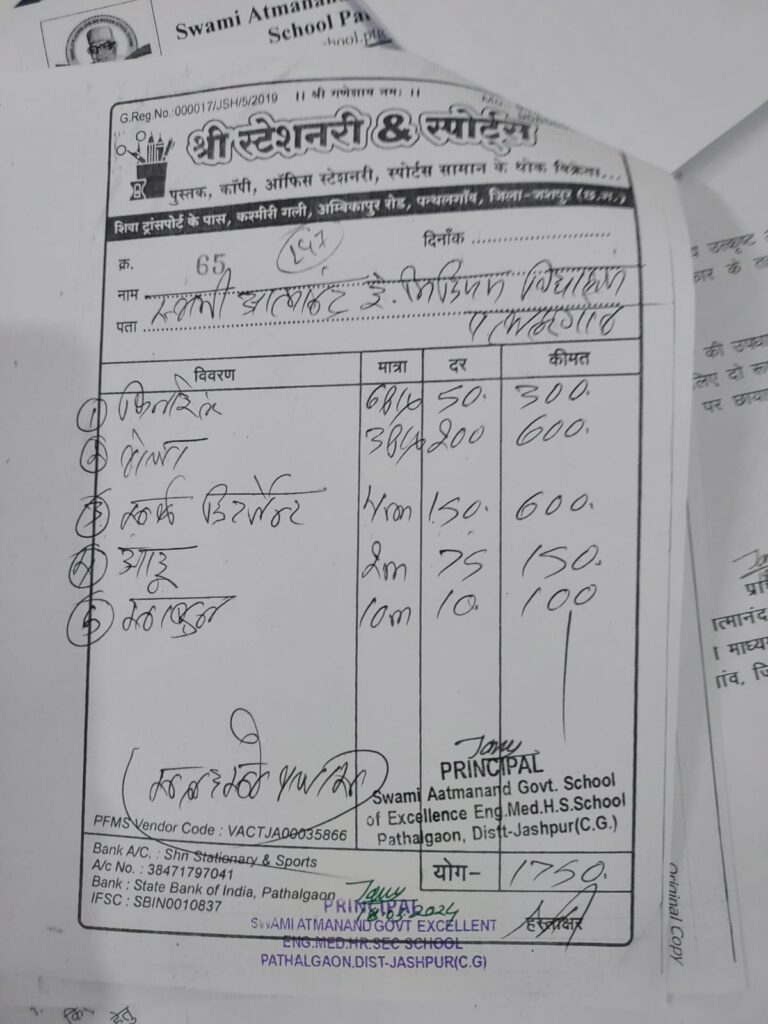 Swami Atmanand
School Pa
G.Reg.No.:000017/JSH/5/2019 ।। श्री गणेशाय नमः ।।
श्री स्टेशनरी & स्पोर्ट्स
पुस्तक, कॉपी, ऑफिस स्टेशनरी, स्पोर्टस सामान के थोक विक्रेता...
शिवा ट्रांसपोर्ट के पास, कश्मीरी गली, अम्बिकापुर रोड, पत्थलगाँव, जिला-जशपुर (छ.ग.)
क्र. 65 दिनाँक
नाम स्वामी आत्मानंद इं. मिडियम विद्यालय
पता पत्थलगांव
विवरण मात्रा दर कीमत
① 50. 300.
② 200 600.
③ सर्फ 4m 150. 600.
④ झाडू 2m 75 150.
⑤ साबुन 10m 10. 100
PRINCIPAL
Swami Aatmanand Govt. School
of Excellence Eng.Med.H.S.School
Pathalgaon, Distt-Jashpur(C.G.)
PFMS Vendor Code : VACTJA00035866
Bank A/C. : Shri Stationary & Sports
A/c No. : 38471797041
Bank : State Bank of India, Pathalgaon
IFSC : SBIN0010837
योग- 1750.
हस्ताक्षर
PRINCIPAL
SWAMI ATMANAND GOVT EXCELLENT
ENG.MED.HR.SEC SCHOOL
PATHALGAON,DIST-JASHPUR(C.G)
उत्कृष्ट
कार के
की उपधा
लिए दो
पर छाया
त्मानंद
माध्य
गांव, जि